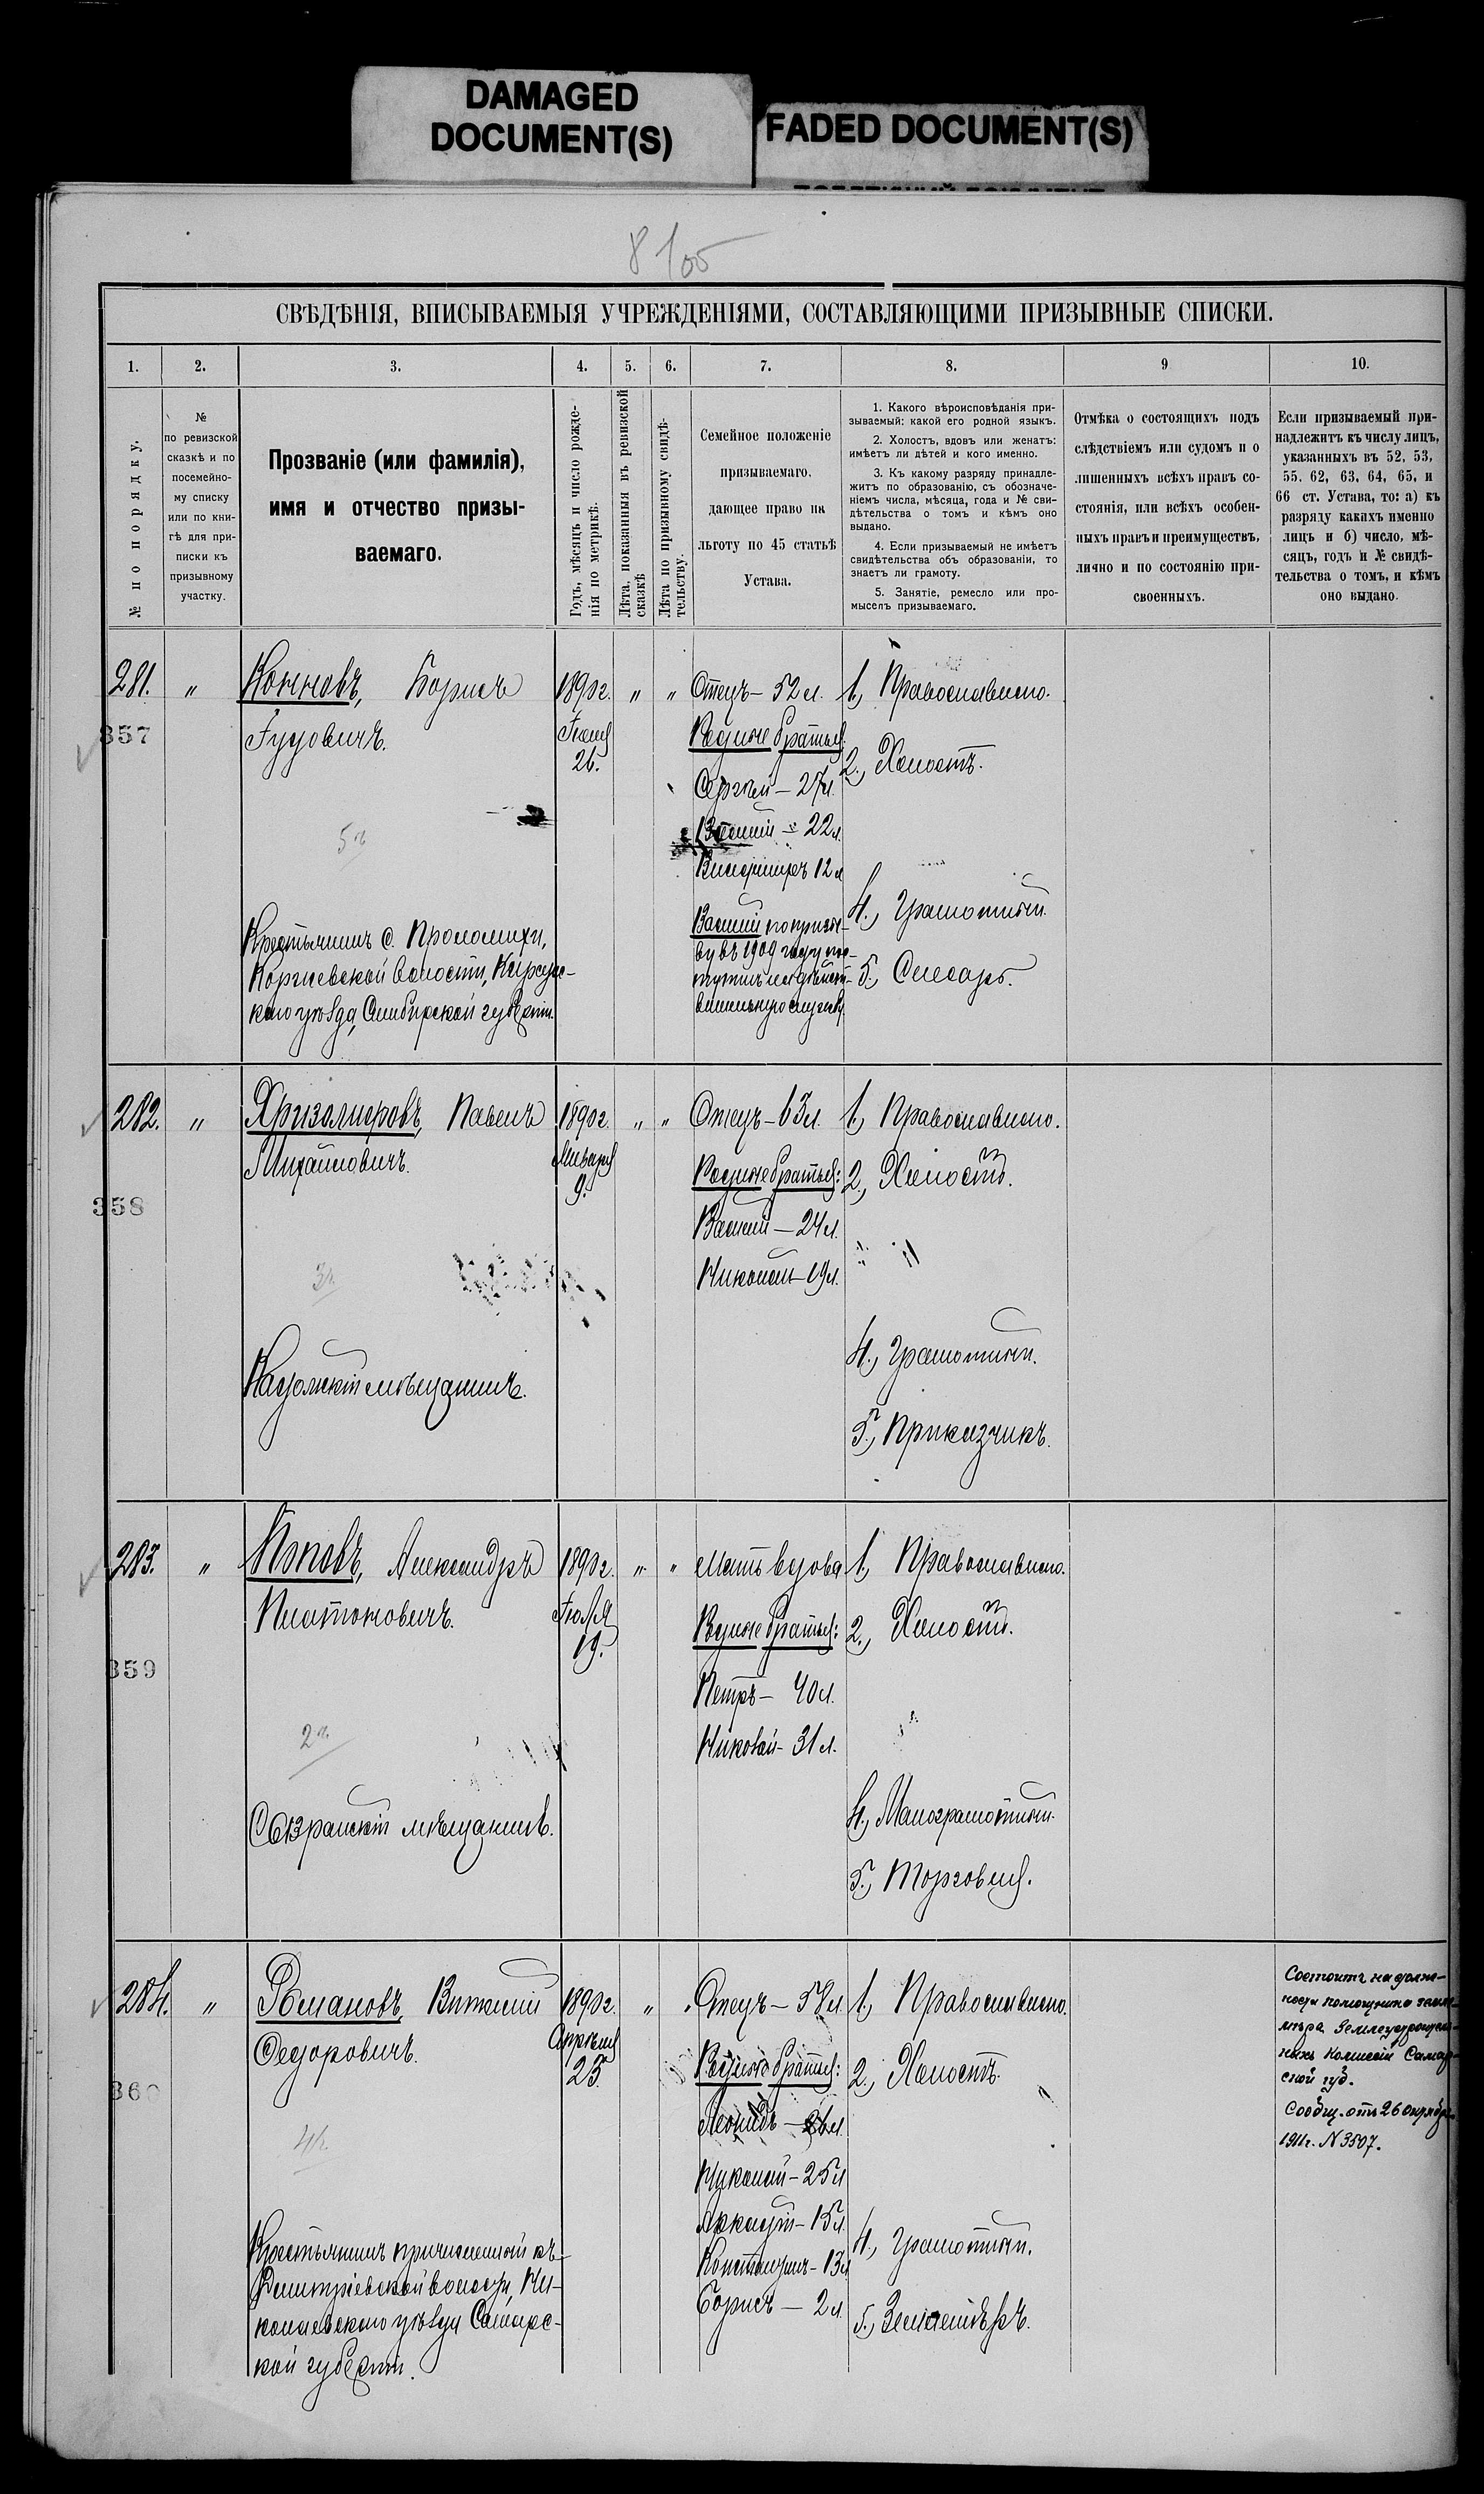 DAMAGED
DOCUMENT(S)
FADED DOCUMENT(S)
СВѢДѢНІЯ, ВПИСЫВАЕМЫЯ УЧРЕЖДЕНІЯМИ, СОСТАВЛЯЮЩИМИ ПРИЗЫВНЫЕ СПИСКИ.
1.
2.
3.
4.
5.
6.
7.
8.
9
10.
№ по порядку.
№
по ревизской
сказкѣ и по
посемейно-
му списку
или по кни-
гѣ для при-
писки къ
призывному
участку.
Прозваніе (или фамилія),
имя и отчество призы-
ваемаго.
Годъ, мѣсяцъ и число рожде-
нія по метрикѣ.
Лѣта, показанныя въ ревизской
сказкѣ
Лѣта по призывному свидѣ-
тельству.
Семейное положеніе
призываемаго,
дающее право на
льготу по 45 статьѣ
Устава.
1. Какого вѣроисповѣданія при-
зываемый: какой его родной языкъ.
2. Холостъ, вдовъ или женатъ:
имѣетъ ли дѣтей и кого именно.
3. Къ какому разряду принадле-
житъ по образованію, съ обозначе-
ніемъ числа, мѣсяца, года и № сви-
дѣтельства о томъ и кѣмъ оно
выдано.
4. Если призываемый не имѣетъ
свидѣтельства объ образованіи, то
знаетъ ли грамоту.
5. Занятіе, ремесло или про-
мыселъ призываемаго.
Отмѣка о состоящихъ подъ
слѣдствіемъ или судомъ и о
лишенныхъ всѣхъ правъ со-
стоянія, или всѣхъ особен-
ныхъ правъ и преимуществъ,
лично и по состоянію при-
своенныхъ.
Если призываемый при-
надлежитъ къ числу лицъ,
указанныхъ въ 52, 53,
55. 62, 63, 64, 65, и
66 ст. Устава, то: а) къ
разряду какихъ именно
лицъ и б) число, мѣ-
сяцъ, годъ и № свидѣ-
тельства о томъ, и кѣмъ
оно выдано.
281.
357
"
Конновъ, Борисъ
Гудовичъ.
Крестьянинъ с. Проломихи,
Коржевской волости, Карсунс-
каго уѣзда, Симбирской губерніи.
1890г.
26.
"
"
Отецъ – 52 л.
Родные братья
Сергѣй – 27л.
Василій – 22л.
Владиміръ 12 л
Василій по призы-
ву въ 1909 году пос-
тупилъ на дѣйст-
вительную службу
1, Православнаго.
2., Холостъ.
4., Грамотный.
5., Слесарь.
282.
358
"
Хризолиеровъ, Павелъ
Михайловичъ.
Кадомскій мѣщанинъ.
1890г.
Января
9.
"
"
Отецъ – 63л.
Родные братья:
Василій – 24 л.
Николай – 19л.
1, Православнаго.
2, Холостъ.
4., Грамотный.
5., Приказчикъ.
283.
359
"
Поповъ, Александръ
Платоновичъ.
Сызранскій мѣщанинъ.
1890г.
Іюля
19.
"
"
Мать вдова
Родные братья:
Петръ – 40л.
Николай – 31 л.
1, Православнаго.
2., Холостъ.
4., Малограмотный.
5., Торговля.
284.
360
"
Романовъ, Виталій
Федоровичъ.
Крестьянинъ причисленный къ
Дмитріевской волости, Ни-
колаевскаго уѣзда Самарс-
кой губерніи.
1890г.
Апрѣля
23.
"
"
Отецъ – 58л
Родные братья:
Леонидъ –
Николай – 25л
Аркадій – 15л.
Константинъ – 13л
Борисъ – 2 л
1, Православнаго.
2., Холостъ.
4., Грамотный.
5., Землемѣръ.
Состоитъ на долж-
ности помощника земле-
мѣра Землеустроитель-
ныхъ Комиссій Самар-
ской губ.
Сообщ. отъ 26 октября
1911г. N 3507.